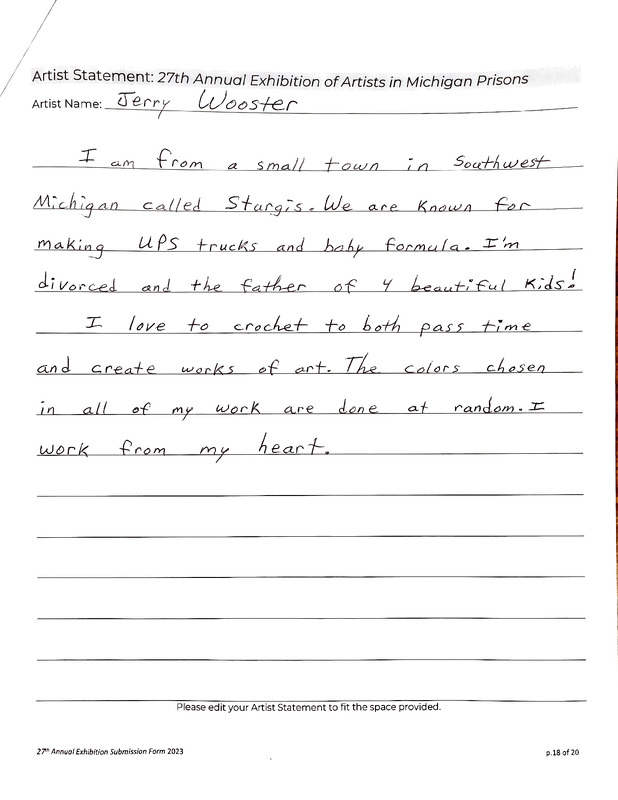 Artist Statement: 27th Annual Exhibition of Artists in Michigan Prisons
Artist Name: Jerry Wooster
I am from a small town in Southwest
Michigan called Sturgis. We are known for
making UPS trucks and baby formula. I'm
divorced and the father of 4 beautiful kids!
I love to crochet to both pass time
and create works of art. The colors chosen
in all of my work are done at random. I
work from my heart.
Please edit your Artist Statement to fit the space provided.
27th Annual Exhibition Submission Form 2023
p.18 of 20